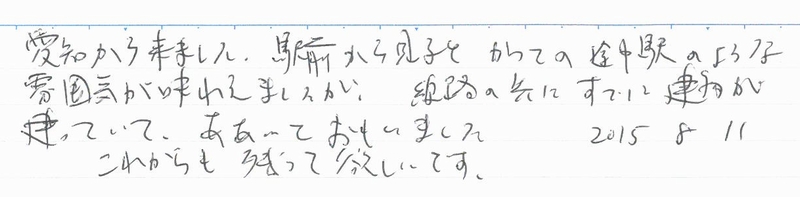 愛知から来ました。駅前から見ると かつての途中駅のような
雰囲気が味わえましたが、線路の先にすでに建物が
建っていて、ああっておもいました 2015 8 11
これからも残って欲しいです。